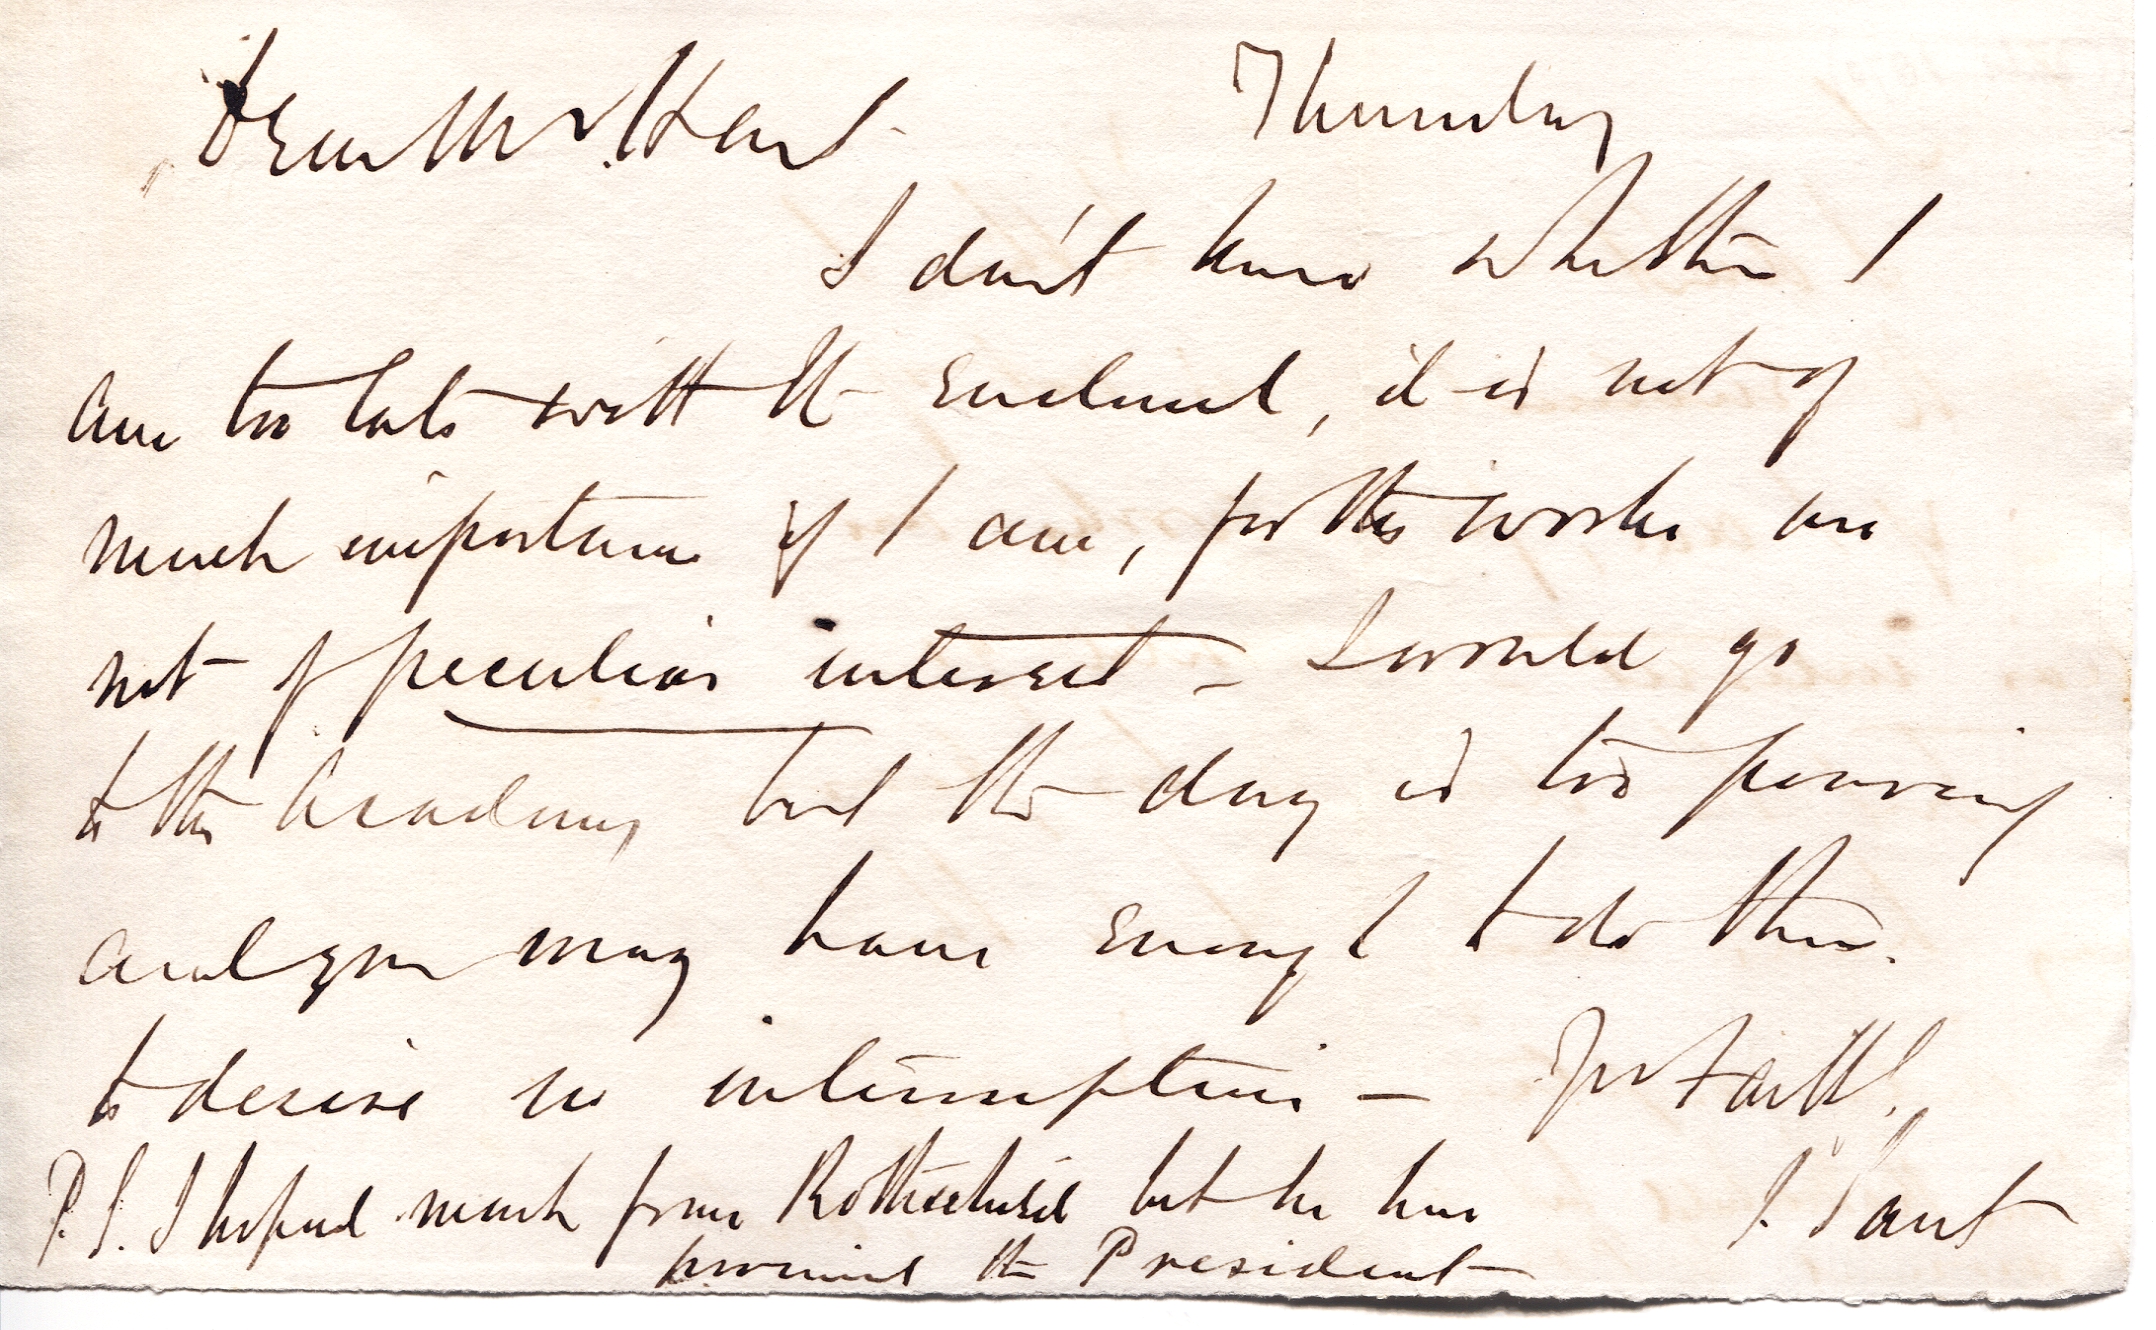 Dear Mr. Hart Thursday
I don't know whether I
am too late with the enclosed, it is not of
much importance if I am, for the works are
not of peculiar interest - I would go
to the Academy but the day is too pouring
and you may have enough to do there
to desire no interruption - Yrs faithf.
P.S. I hoped much from Rothschild but he has J. Sant
promised the President